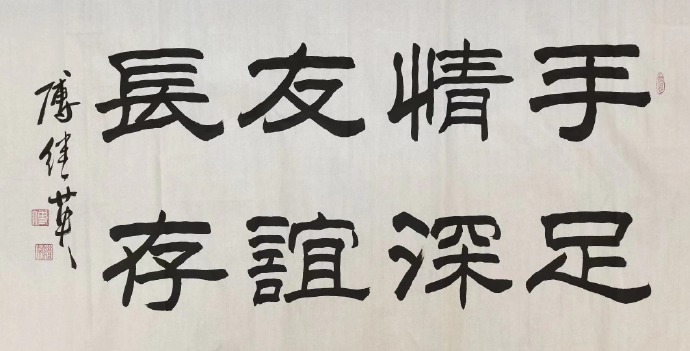 手足
情深
友誼
長存
傅